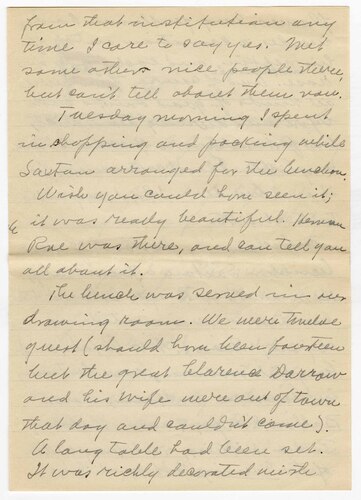 from that institution any
time I care to say yes. Met
some other nice people there,
but can't tell about them now.
Tuesday morning I spent
in shopping and packing while
Saxton arranged for the lunchon.
Wish you could have seen it;
it was really beautiful. Herman
Roe was there, and can tell you
all about it.
The lunch was served in our
drawing room. We were twelve
guest (should have been fourteen
but the great Clarence Darrow
and his wife were out of town
that day and couldn't come).
A long table had been set.
It was richly decorated with